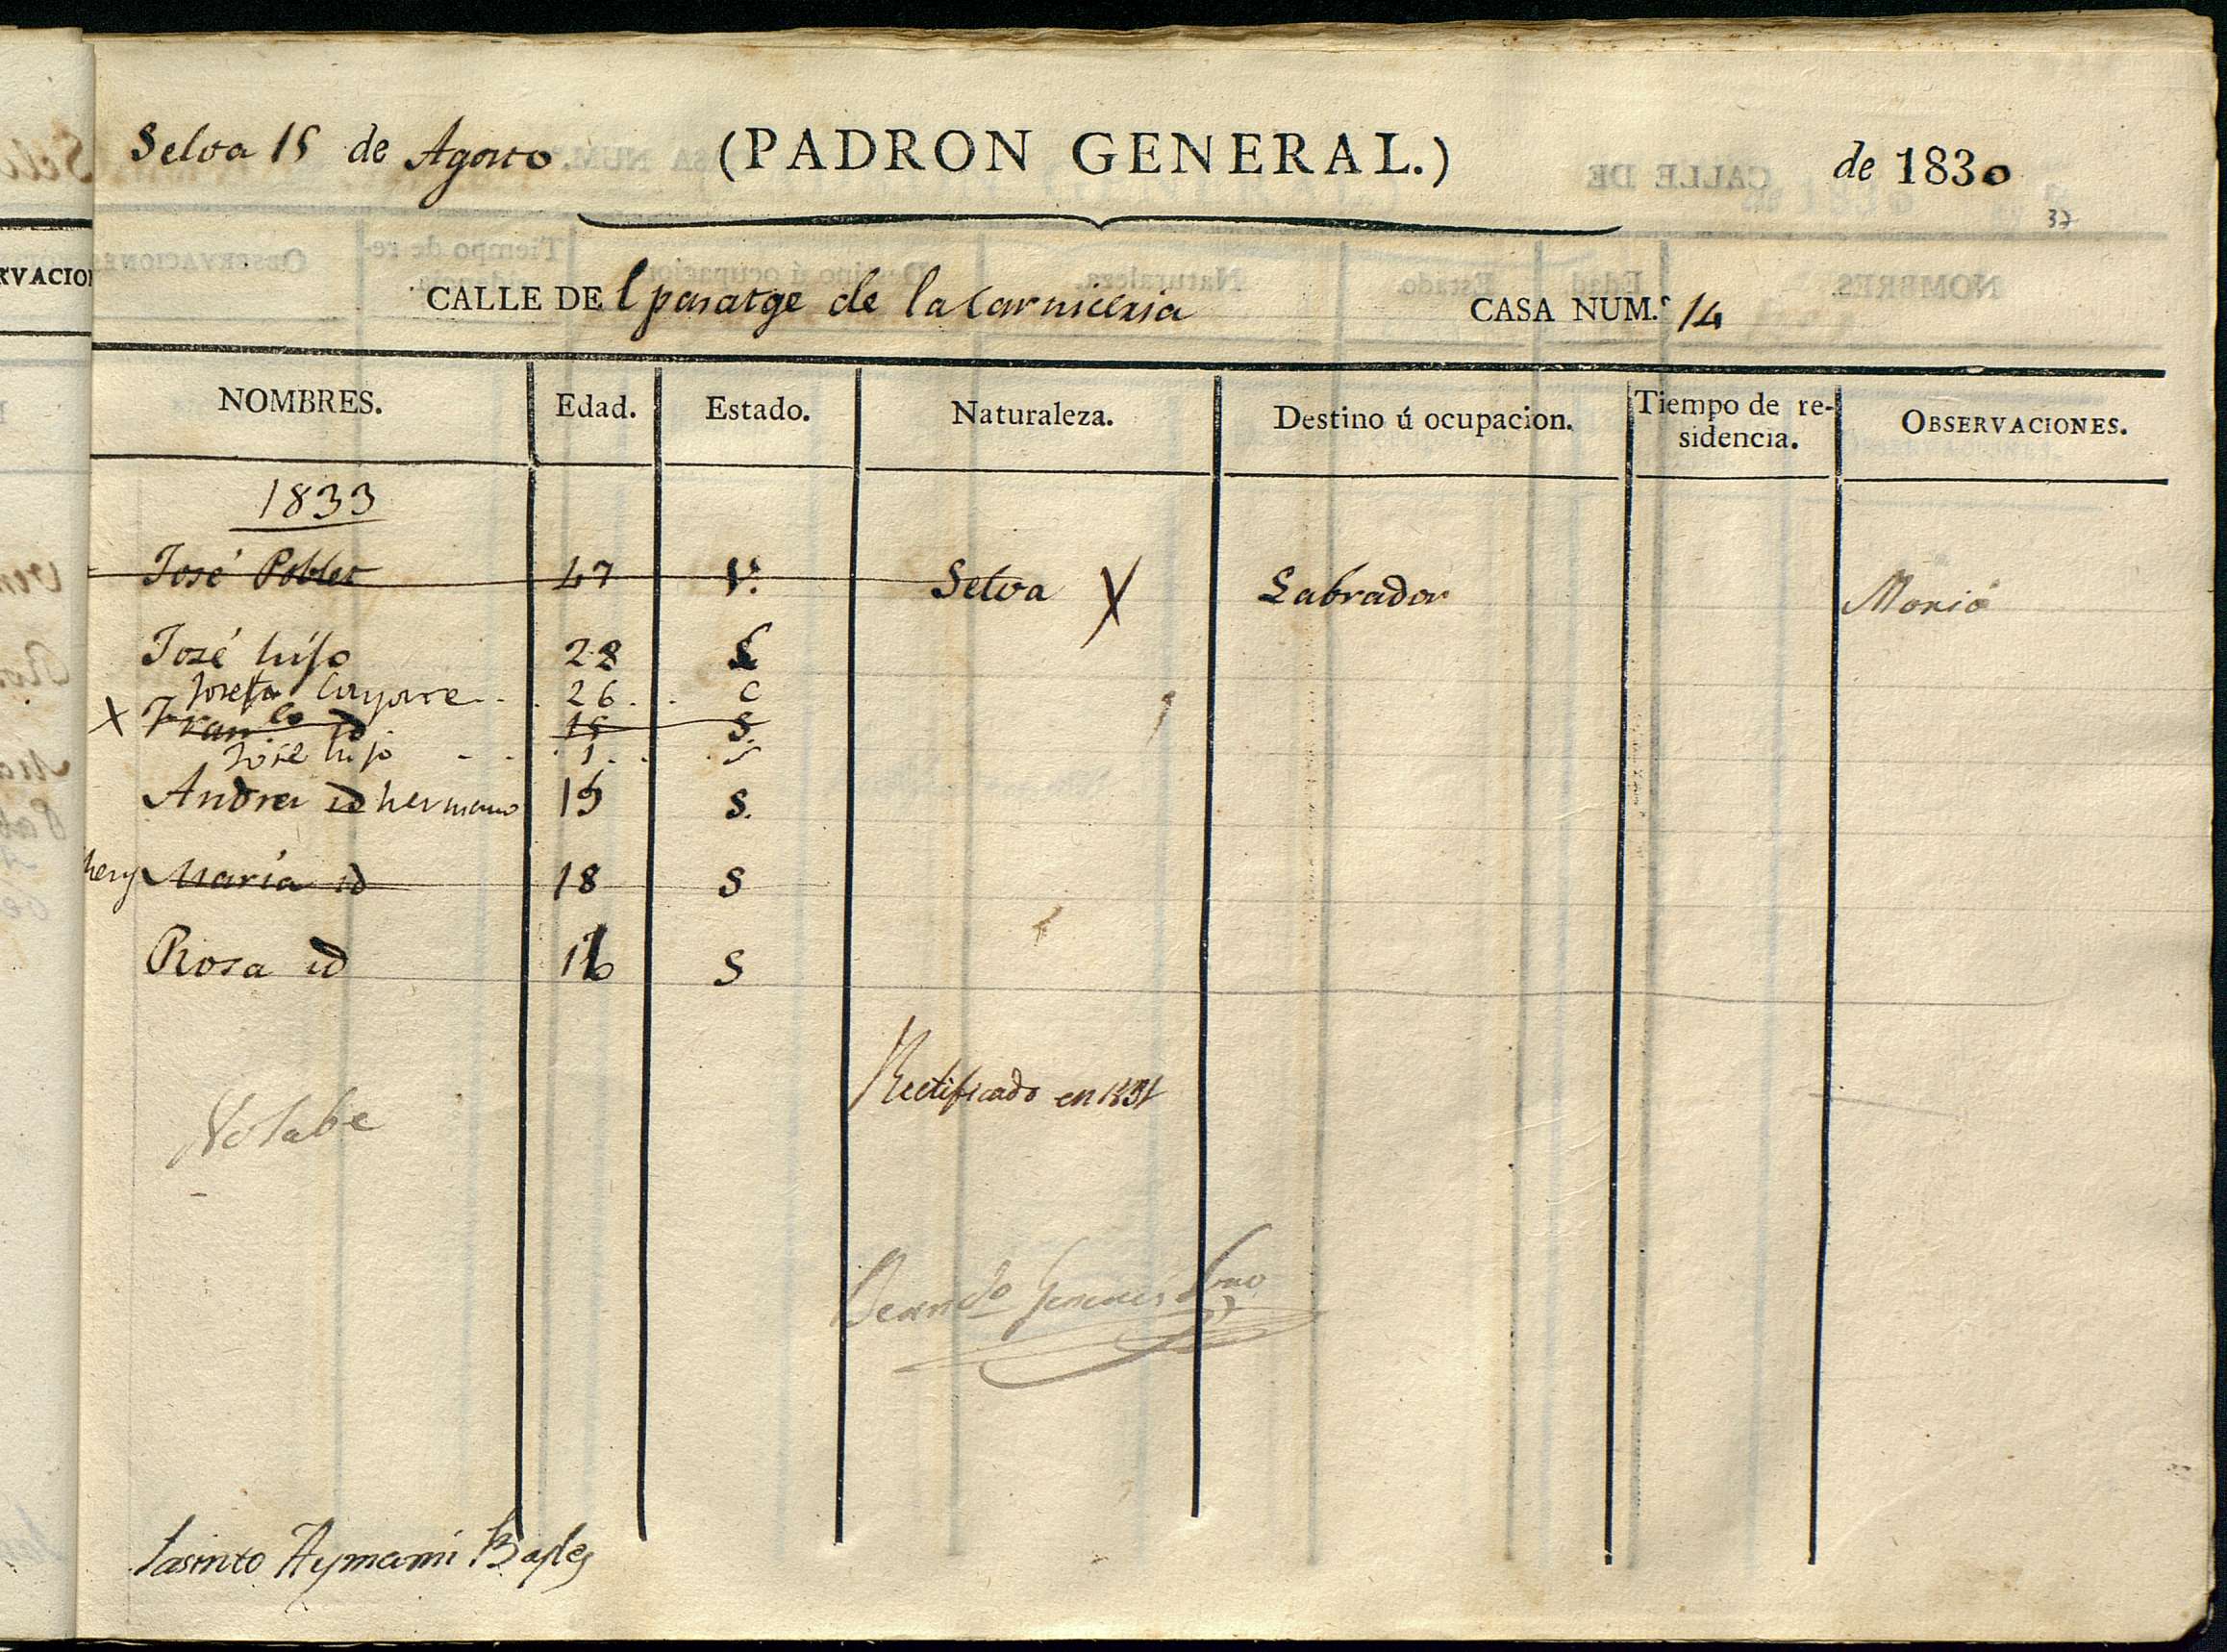 Selva 15 de Agosto (PADRON GENERAL.) de 1830
37
CALLE DE l pasatge de la Carniceria CASA NUM.º 14
NOMBRES. Edad. Estado. Naturaleza. Destino ú ocupacion. Tiempo de re- OBSERVACIONES.
sidencia.
1833
José Poblet 47 V. Selva X Labrador Morió
José hijo 28
Josefa 26 C
X Fran.co id 18 S.
José hijo 1 S
Andreu id hermano 15 S.
María id 18 S
Rosa id 16 S
Rectificado en 1831
No sabe
Jasinto Aymamí Bayle